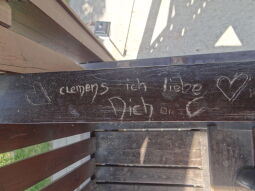 clemens ich liebe ♡
Dich